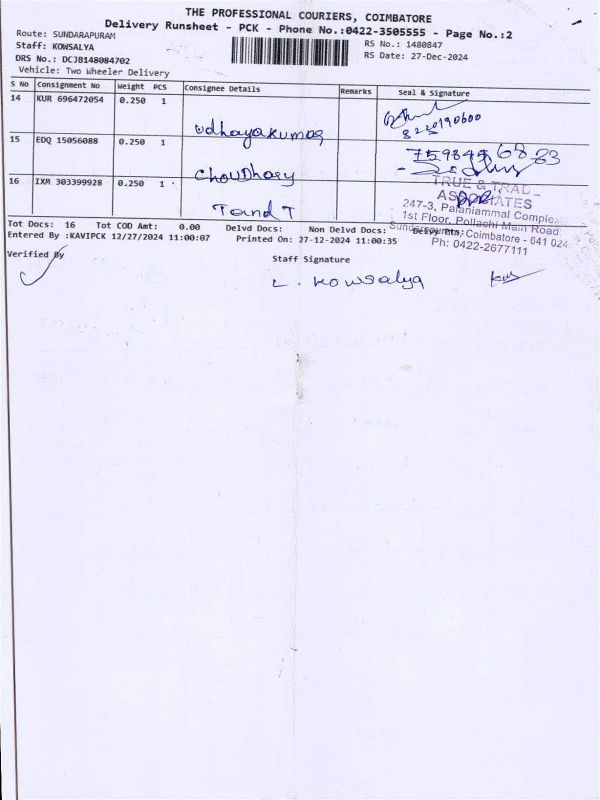 THE PROFESSIONAL COURIERS, COIMBATORE
Delivery Runsheet - PCK - Phone No.:0422-3505555 - Page No.:2
Route: SUNDARAPURAM
Staff: KOWSALYA
DRS No.: DCJB148084702
Vehicle: Two Wheeler Delivery
RS No.: 1480847
RS Date: 27-Dec-2024
S No Consignment No Weight PCS Consignee Details Remarks Seal & Signature
14 KUR 696472054 0.250 1
udhayakumar
8220190600
15 EDQ 15056088 0.250 1
Choudhary
16 IXM 303399928 0.250 1
T and T
TRUE & TRAD
ASSOCIATES
247-3, Palaniammal Complex
1st Floor, Pollachi Main Road
Sundarapuram, Coimbatore - 641 024
Ph: 0422-2677111
Tot Docs: 16 Tot COD Amt: 0.00 Delvd Docs: Non Delvd Docs: Delvy Btn:
Entered By :KAVIPCK 12/27/2024 11:00:07 Printed On: 27-12-2024 11:00:35
Verified By
Staff Signature
L. Kowsalya